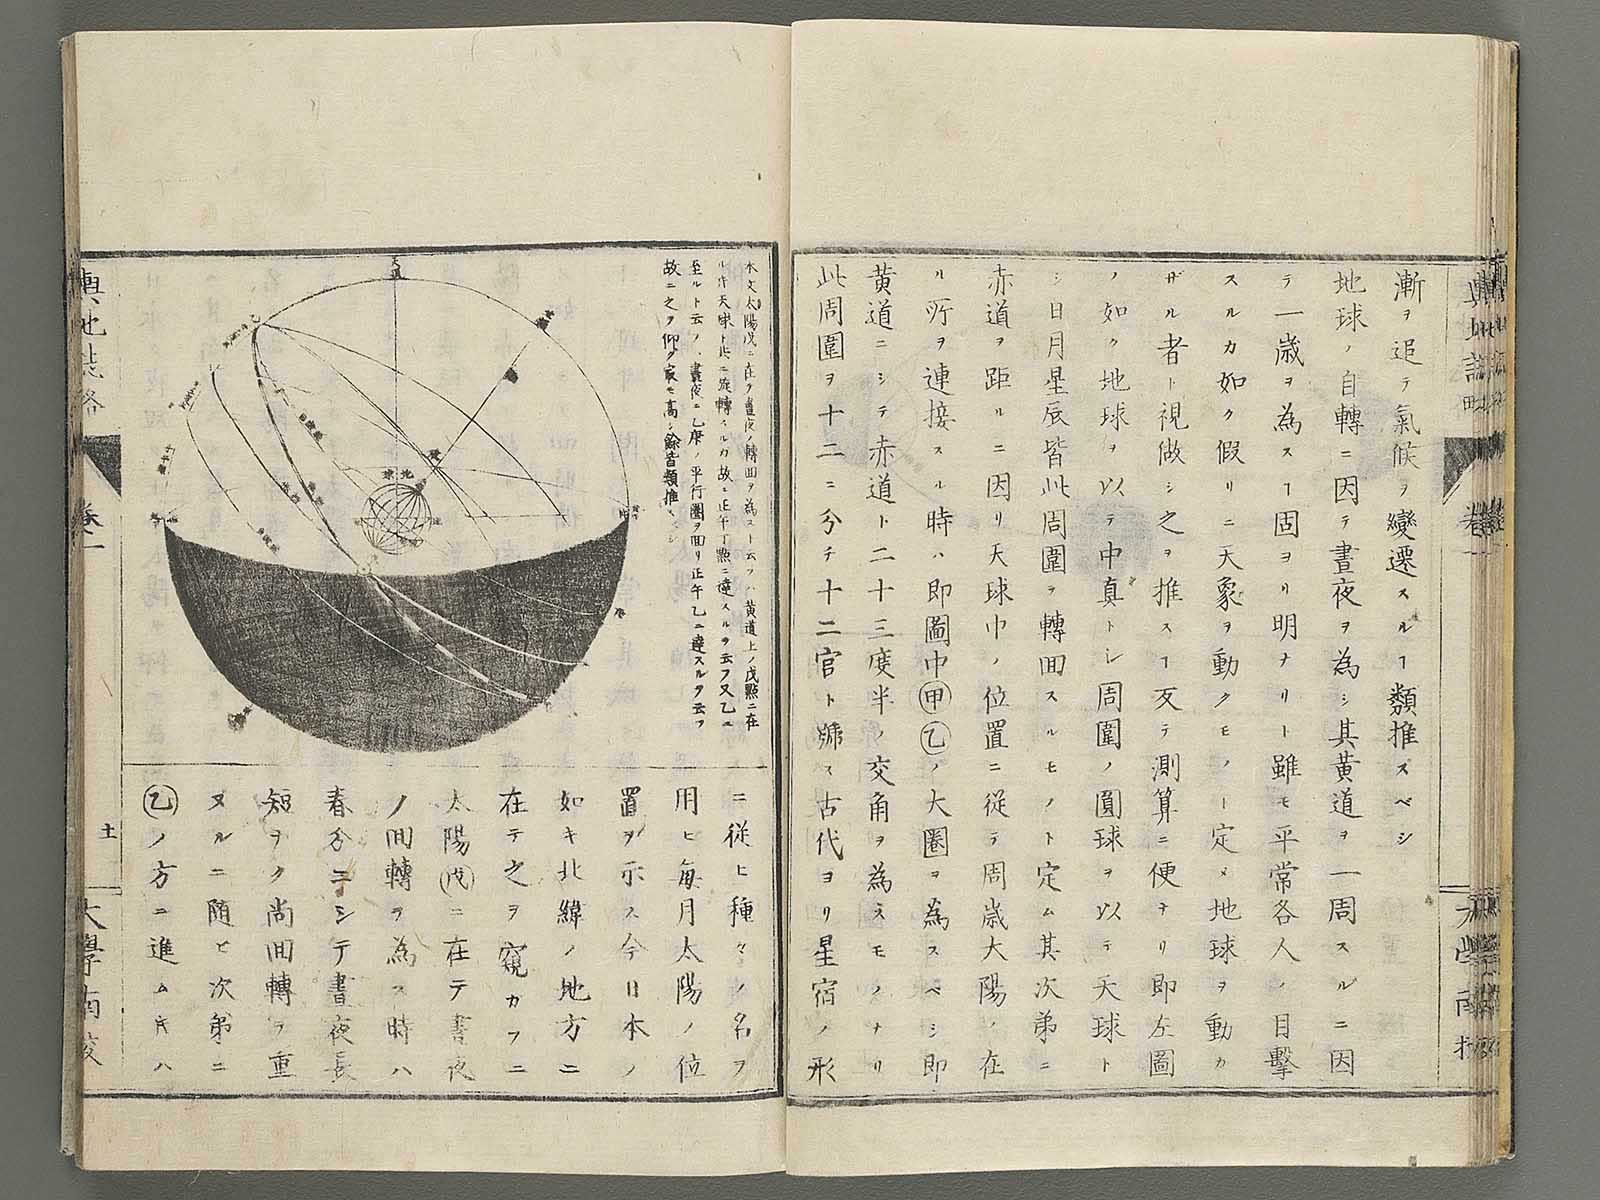 漸ヲ追テ氣候ヲ變遷スルヿ類推スベシ
地球ノ自轉ニ因テ晝夜ヲ為シ其黄道ヲ一周スルニ因
テ一歳ヲ為スヿ固ヨリ明ナリト雖モ平常各人ノ目擊
スルカ如ク假リニ天象ヲ動クモノト定メ地球ヲ動カ
ザル者ト視做シ之ヲ推スヿ反テ測算ニ便ナリ即左圖
ノ如ク地球ヲ以テ中真トシ周圍ノ圓球ヲ以テ天球ト
シ日月星辰皆此周圍ヲ轉回スルモノト定ム其次第ニ
赤道ヲ距ルニ因リ天球中ノ位置ニ従テ周歳大陽ノ在
ル所ヲ連接スル時ハ即圖中甲乙ノ大圏ヲ為スベシ即
黄道ニシテ赤道ト二十三度半ノ交角ヲ為スモノナリ
此周圍ヲ十二ニ分チ十二宮ト號ス古代ヨリ星宿ノ形
輿地誌略
卷一
大學南校
本文太陽戊ニ在ヲ晝夜ノ轉回ヲ為スト云フハ黄道上ノ戊點ニ在
ル片天球ト共ニ旋轉スルカ故ニ正午丁點ニ達スルヲ云フ又乙ニ
至ルト云フハ晝夜ニ乙庚ノ平行圏ヲ回リ正午乙ニ達スルヲ云フ
故ニ之ヲ仰ク最モ高シ餘皆類推スベシ
天頂
地球
北
ニ従ヒ種々ノ名ヲ
用ヒ毎月太陽ノ位
置ヲ示ス今日本ノ
如キ北緯ノ地方ニ
在テ之ヲ窺カフニ
太陽戊ニ在テ晝夜
ノ回轉ヲ為ス時ハ
春分ニシテ晝夜長
短ヲク尚回轉ヲ重
ヌルニ随ヒ次第ニ
乙ノ方ニ進ム片ハ
輿地誌略
卷一
十一
大學南校